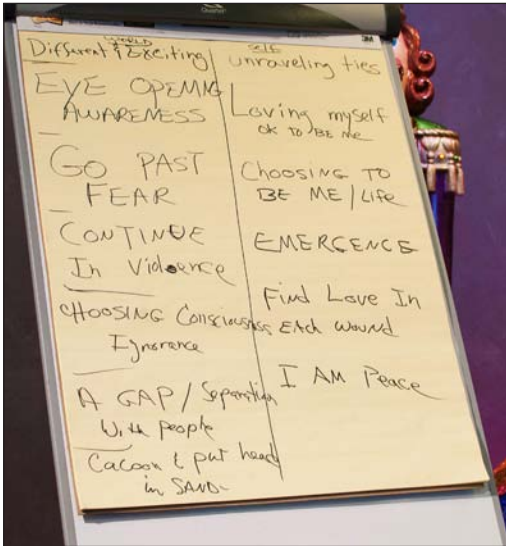 WORLD
Different & Exciting
EYE OPENING
AWARENESS
GO PAST
FEAR
CONTINUE
In Violence
CHOOSING Consciousness
Ignorance
A GAP / Separation
With people
Cacoon & put head
in SAND
SELF
unraveling ties
Loving myself
OK TO BE me
CHOOSING TO
BE ME / Life
EMERGENCE
Find Love In
EACH wound
I AM Peace
3M